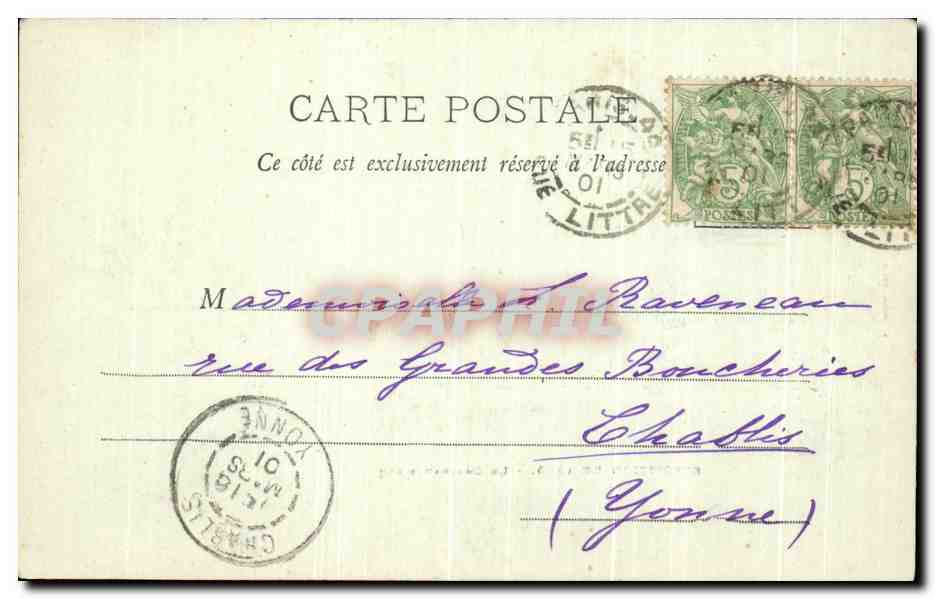 CARTE POSTALE
Ce côté est exclusivement réservé à l'adresse
RUE LITTRÉ
01
5
POSTES
5
POSTES
01
Mademoiselle Raveneau
rue des Grandes Boucheries
Chablis
(Yonne)
CHABLIS
YONNE
18
MARS
01
CPAPHIL